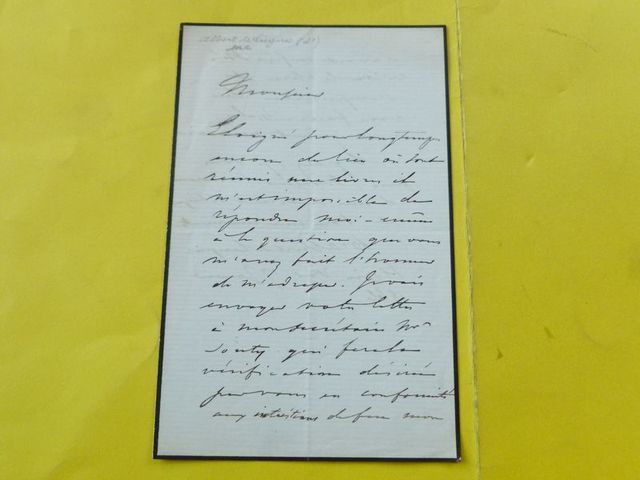 Albert de Luynes (d')
Monsieur
Eloigné pour longtemps
encore du lieu où sont
réunis mes livres il
m'est impossible de
répondre moi-même
à la question que vous
m'avez fait l'honneur
de m'adresser. Je vais
envoyer votre lettre
à mon secrétaire Mr
qui fera la
vérification désirée
par vous en conformité
aux intentions de feu mon